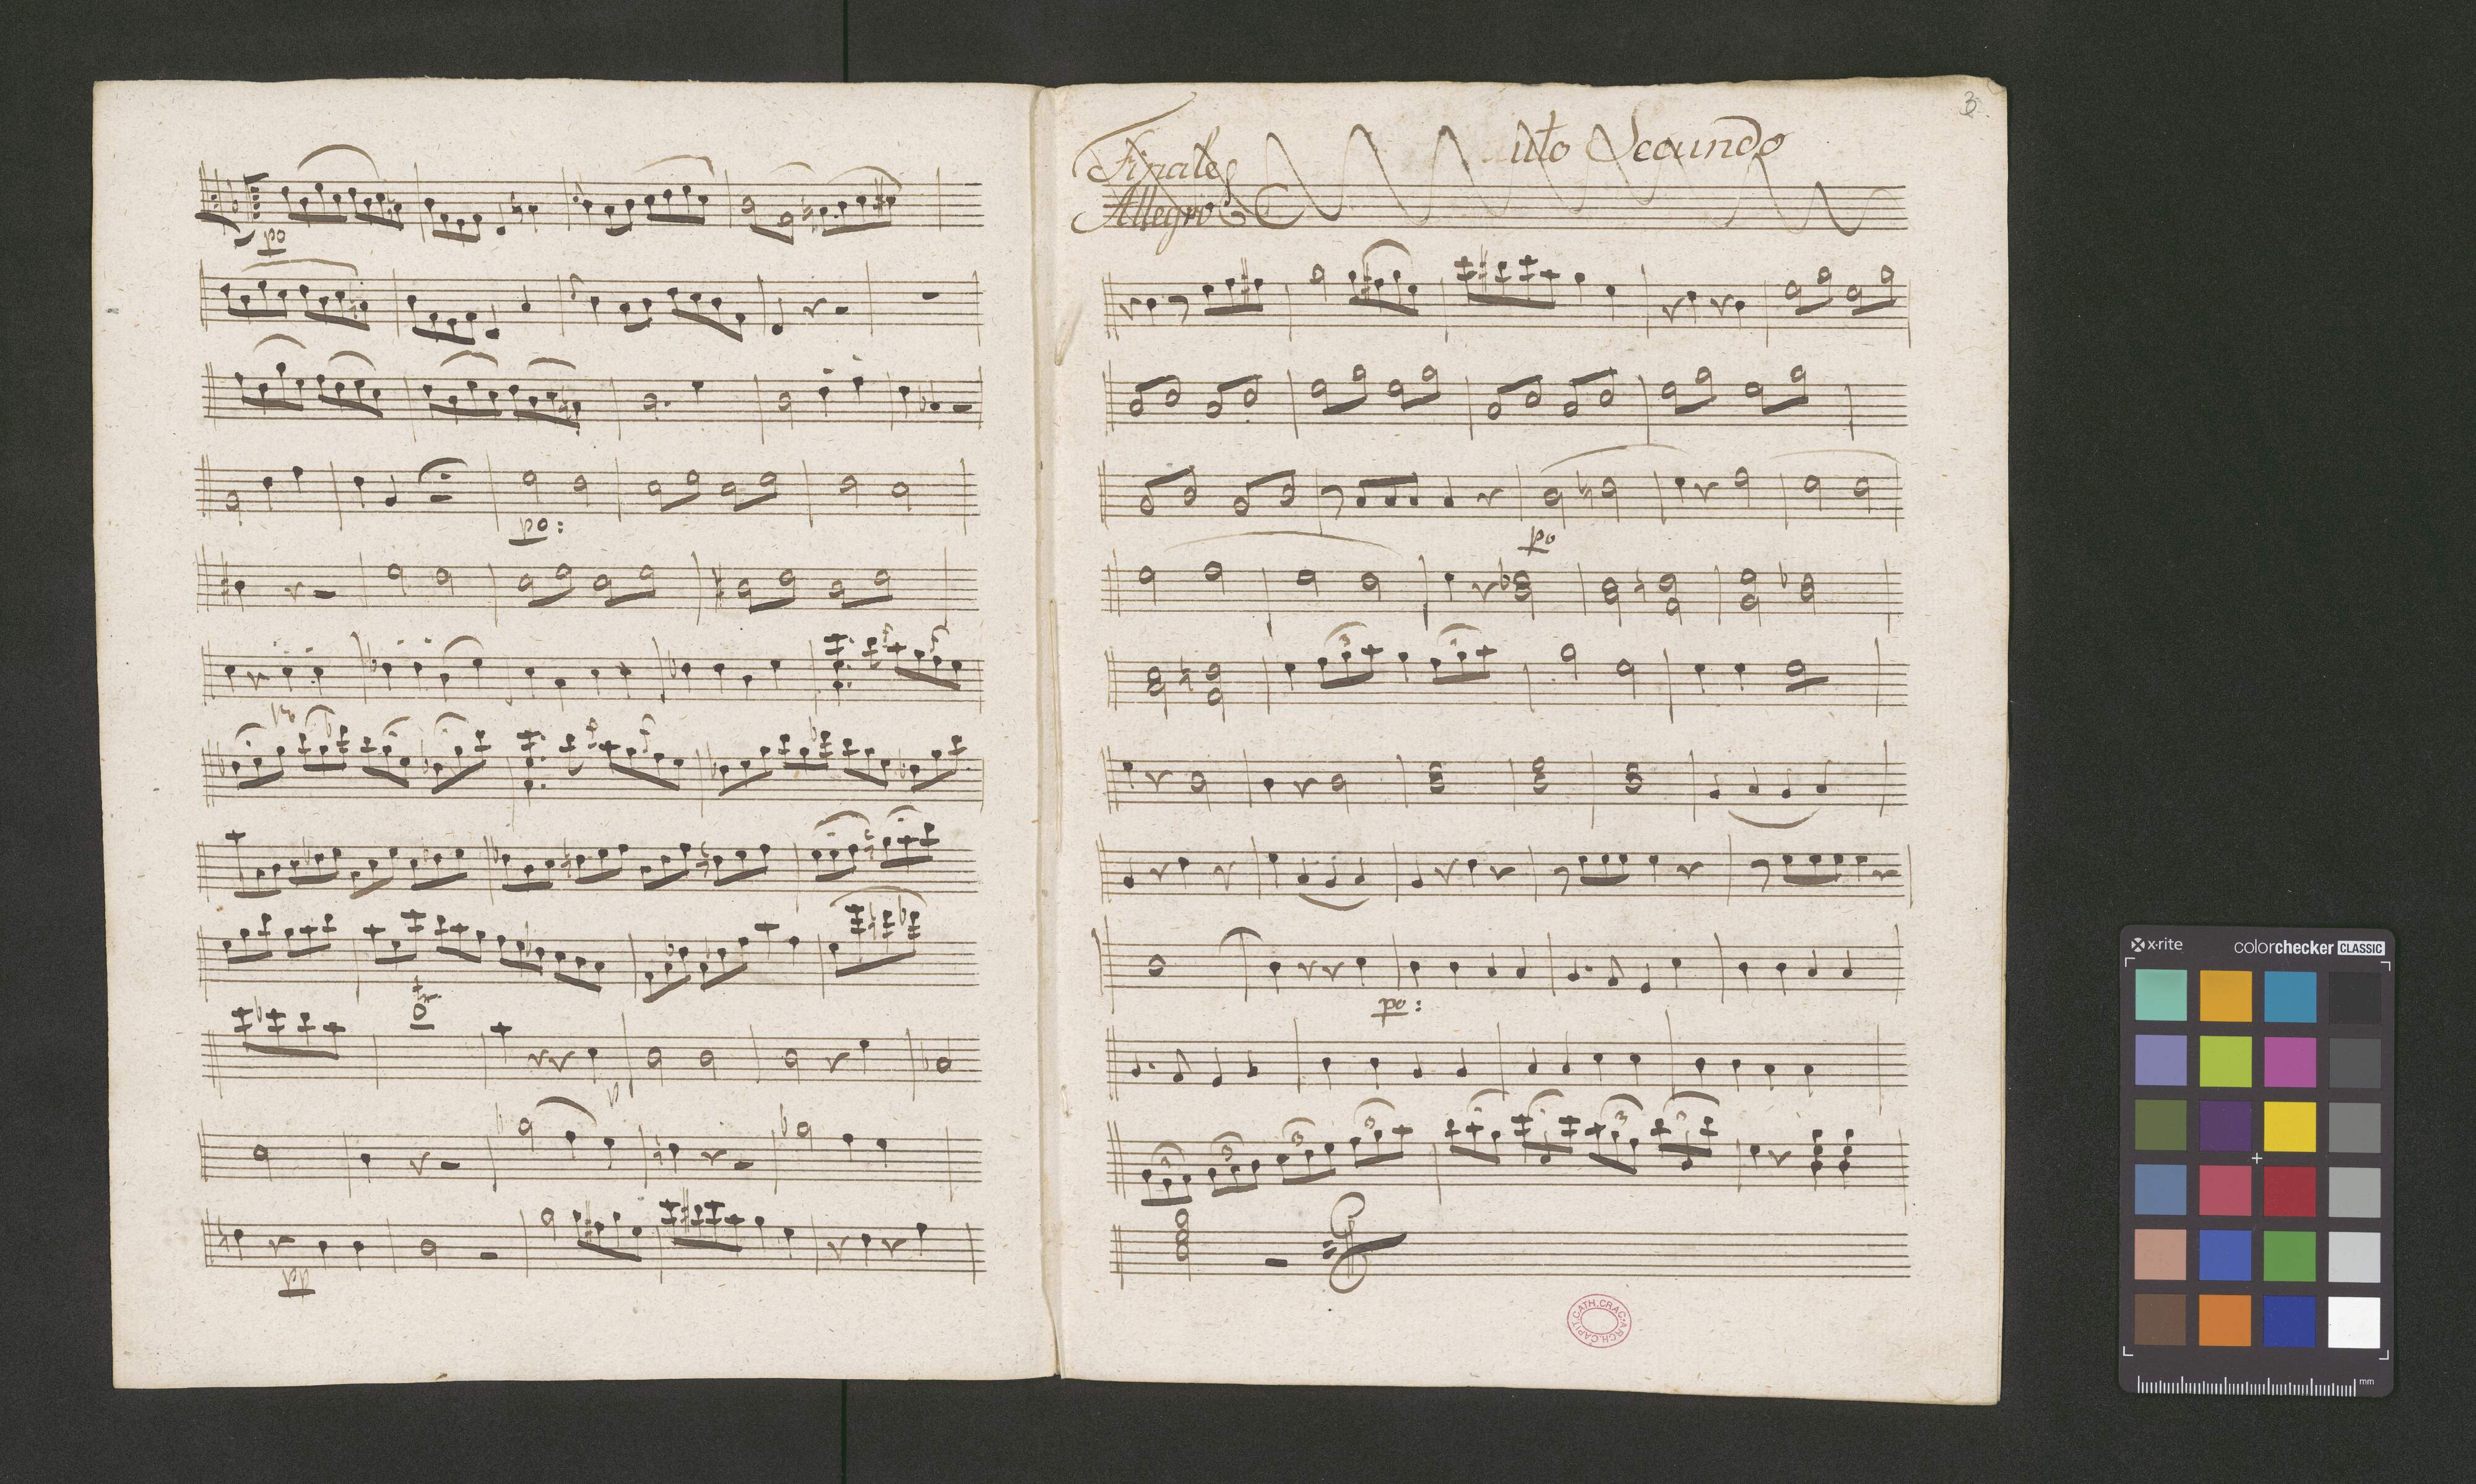 po
po:
tr
p
pp
3
Finale
Allegro
Atto Secundo
po
3
po:
3
3
3
3
3
ARCH.CAPIT.CATH.CRAC.
x·rite
colorchecker CLASSIC
mm